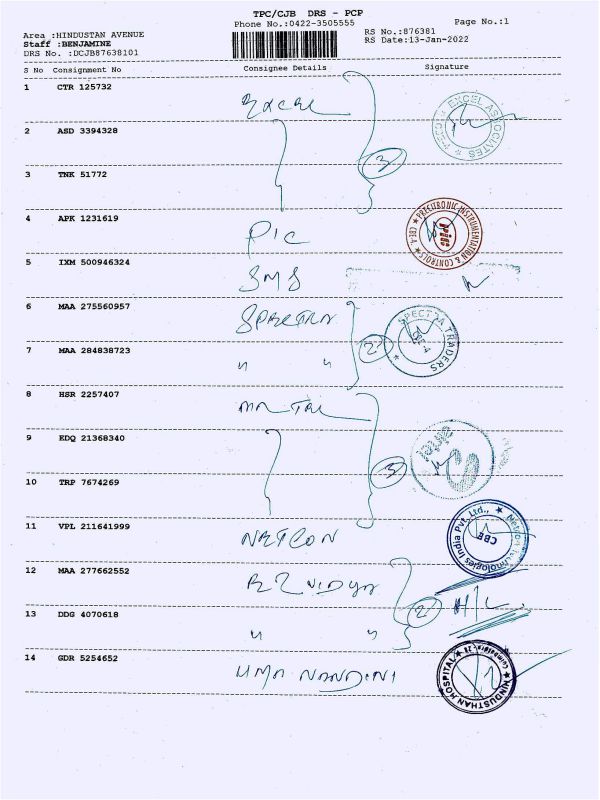 TPC/CJB DRS - PCP
Phone No.:0422-3505555 Page No.:1
Area :HINDUSTAN AVENUE RS No.:876381
Staff :BENJAMINE RS Date:13-Jan-2022
DRS No. :DCJB87638101
S No Consignment No Consignee Details Signature
1 CTR 125732 Excel EXCEL ASSOCIATES
2 ASD 3394328 3
3 TNK 51772
4 APK 1231619 PIC PRECITRONIC INSTRUMENTATION & CONTROLS ★ CBE-4 ★ pic
5 IXM 500946324 SMS
6 MAA 275560957 SPECTRA SPECTRA TRADERS ★ CBE-4
7 MAA 284838723 " " 2
8 HSR 2257407
9 EDQ 21368340 3 airtel
10 TRP 7674269
11 VPL 211641999 NETCON Technologies India Pvt. Ltd., ★ CBE
12 MAA 277662552 VIDYA
13 DDG 4070618 " " 2
14 GDR 5254652 UMA NANDINI HINDUSTHAN HOSPITAL ★ Coimbatore-28 ★